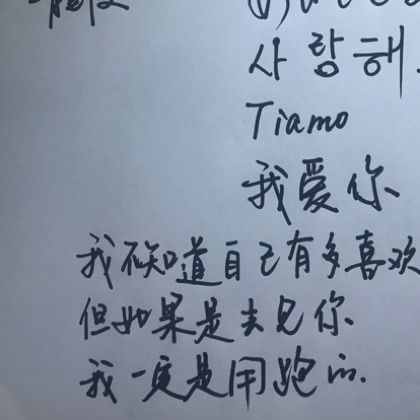 사랑해
Tiamo
我爱你
我不知道自己有多喜欢
但如果是去见你
我一定是用跑的.